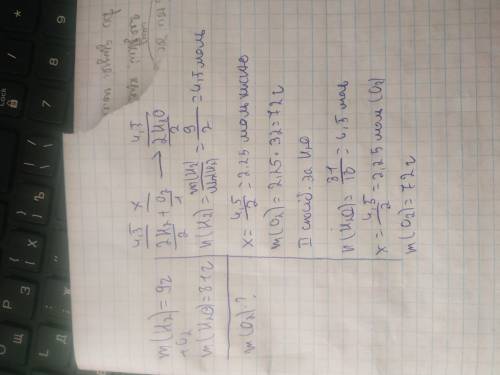 m(H₂)=9г
+O₂
m(H₂O)=81г
m(O₂)-?
4,5 x 4,5
2H₂ + O₂ → 2H₂O
2 1 2
n(H₂)= m(H₂)/M(H₂) = 9/2 = 4,5 моль
x = 4,5/2 = 2.25 моль кисню
m(O₂) = 2,25 · 32 = 72г
II спосіб. за H₂O
n(H₂O) = 81/18 = 4,5 моль
x = 4,5/2 = 2,25 моль (O₂)
m(O₂) = 72г